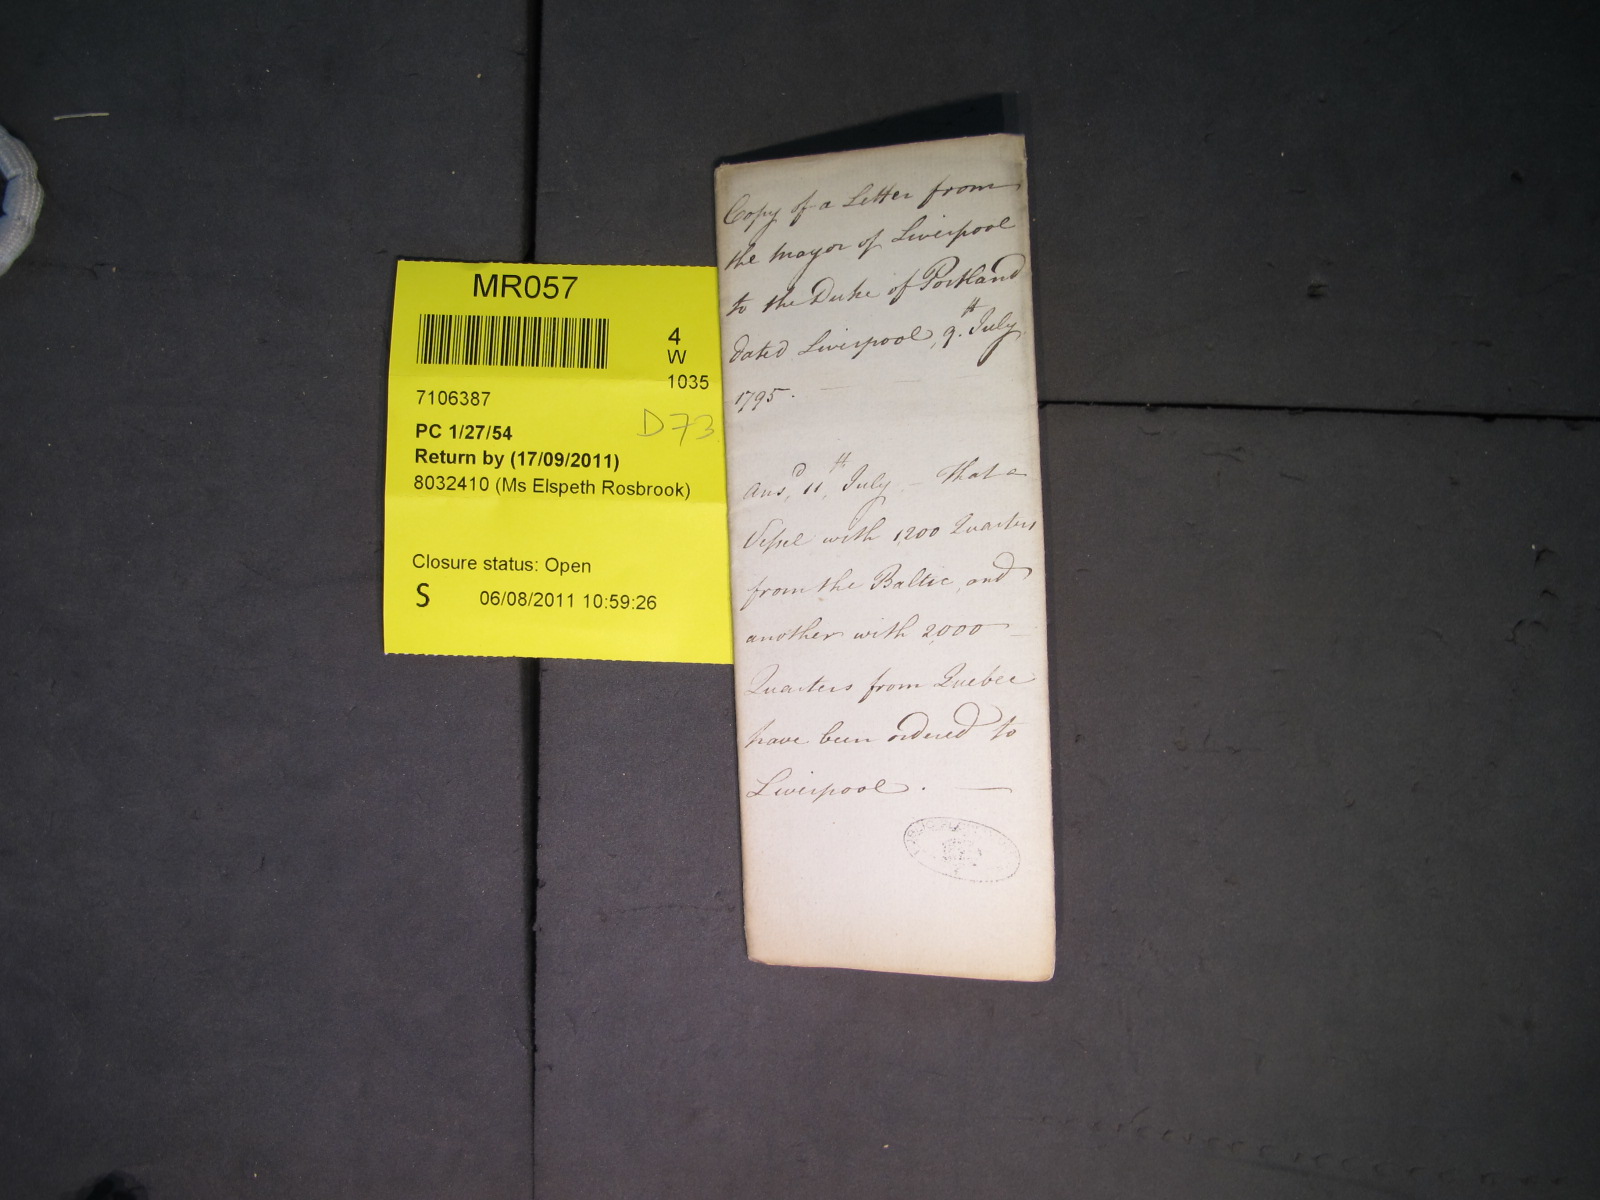 MR057
4
W
1035
7106387
D73
PC 1/27/54
Return by (17/09/2011)
8032410 (Ms Elspeth Rosbrook)
Closure status: Open
S 06/08/2011 10:59:26
Copy of a Letter from
the Mayor of Liverpool
to the Duke of Portland
dated Liverpool, 9.th July
1795.
Ans.d 11.th July – That a
Vessel with 1200 Quarters
from the Baltic, and
another with 2000
Quarters from Quebec
have been ordered to
Liverpool. —